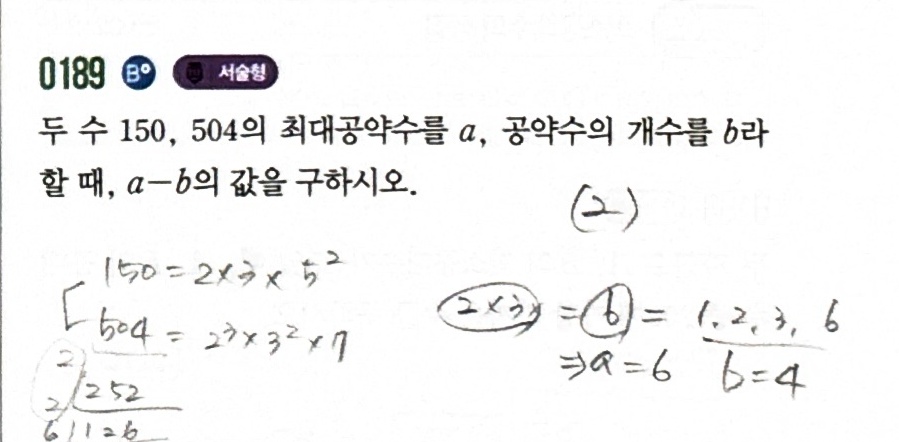 0189 B° 서술형
두 수 150, 504의 최대공약수를 a, 공약수의 개수를 b라
할 때, a-b의 값을 구하시오.
(2)
150 = 2×3×5²
504 = 2³×3²×7
2
2 252
6 126
2×3× = 6 = 1, 2, 3, 6
⇒a=6 b=4